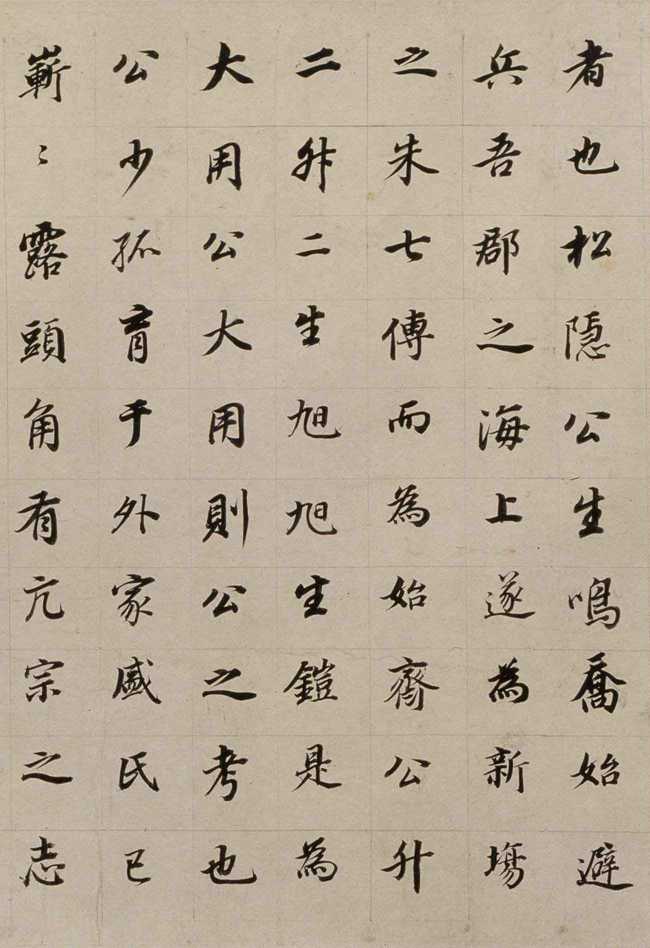 者也松隱公生鳴喬始避
兵吾郡之海上遂為新塲
之朱七傳而為始齋公升
二升二生旭旭生鎧是為
大用公大用則公之考也
公少孤育于外家戚氏已
嶄〻露頭角有亢宗之志